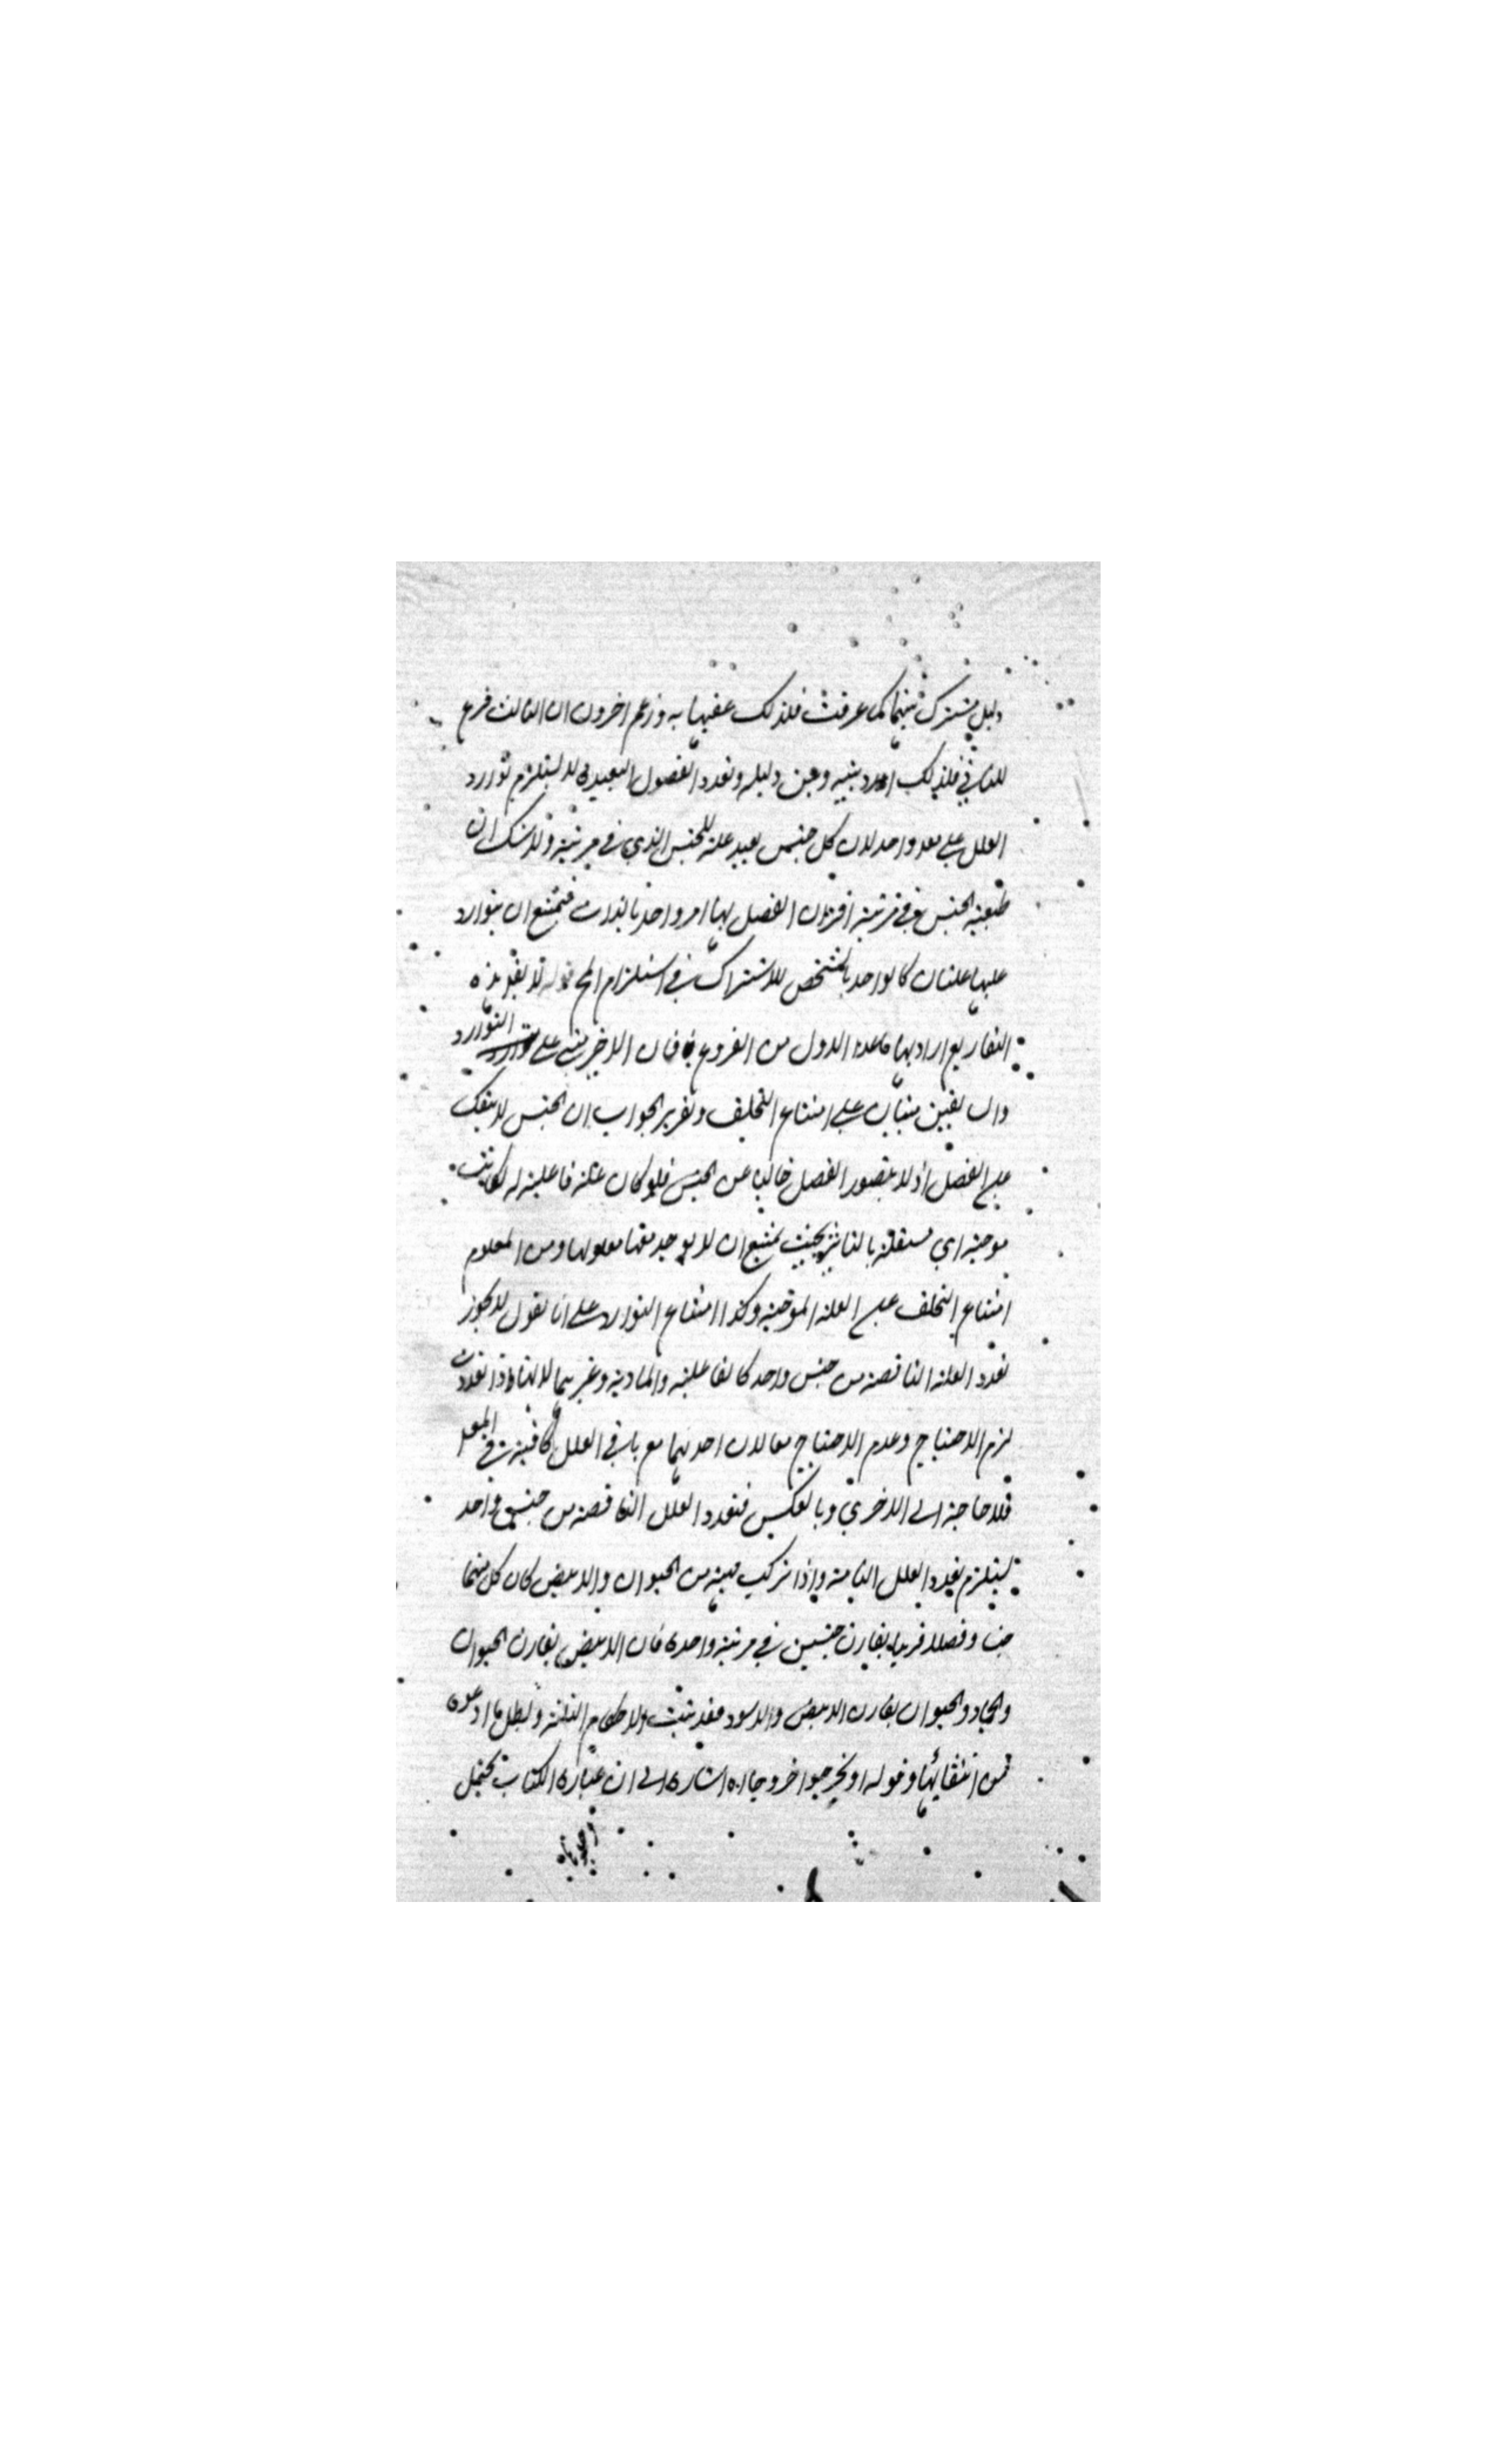 دليل مشترك بينهما كما عرفت فلذلك عقبها به وزعم اخرون ان الثالث فرع
للثاني فلذلك اورد بينه وبين دليله وتعدد الفصول البعيدة لا يستلزم توارد
العلل على معلول واحد لان كل جنس بعيد علة للجنس الذي في مرتبته ولا شك ان
طبيعة الجنس في مرتبة اقتران الفصل بها امر واحد بالذات فيمتنع ان يتوارد
عليها علتان كالواحد بالشخص للاشتراك في استلزام المح قوله لا يقال هذه
التفاريع اراد بها ماعدا الاول من الفروع فان الاخير مبني على التوارد
والباقيين مبنيان على امتناع التخلف وتقرير الجواب ان الجنس لا ينفك
عن الفصل اذ لا يتصور الفصل خاليا عن الجنس فلو كان علة فاعلية له لكانت
موجبة اي مستقلة بالتاثير بحيث يمتنع ان لا يوجد معها معلولها ومن المعلوم
امتناع التخلف عن العلة الموجبة وكذا امتناع التوارد على انا نقول لا يجوز
تعدد العلة الناقصة من جنس واحد كالفاعلية والمادية وغيرهما لانها اذا تعددت
لزم الاحتياج وعدم الاحتياج معا لان احديهما مع باقي العلل كافية في المعلول
فلا حاجة الى الاخرى وبالعكس فتعدد العلل الناقصة من جنس واحد
يستلزم تعدد العلل التامة واذا تركب مهية من الحيوان والابيض كان كل منهما
جنسا وفصلا قريبا يقارن جنسين في مرتبة واحدة فان الابيض يقارن الحيوان
والجماد والحيوان يقارن الابيض والاسود فقد ثبت الاحكام الثلثة وبطل ما ادعوه
من انتفائها وقوله او يخرجوا خروجا اه اشارة الى ان عبارة الكتاب تحتمل